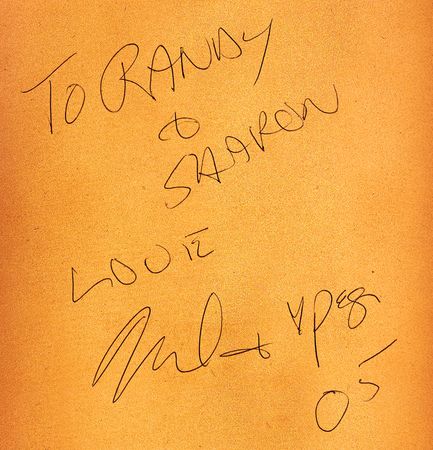 To RANDY
&
SHARON
LOVE
05